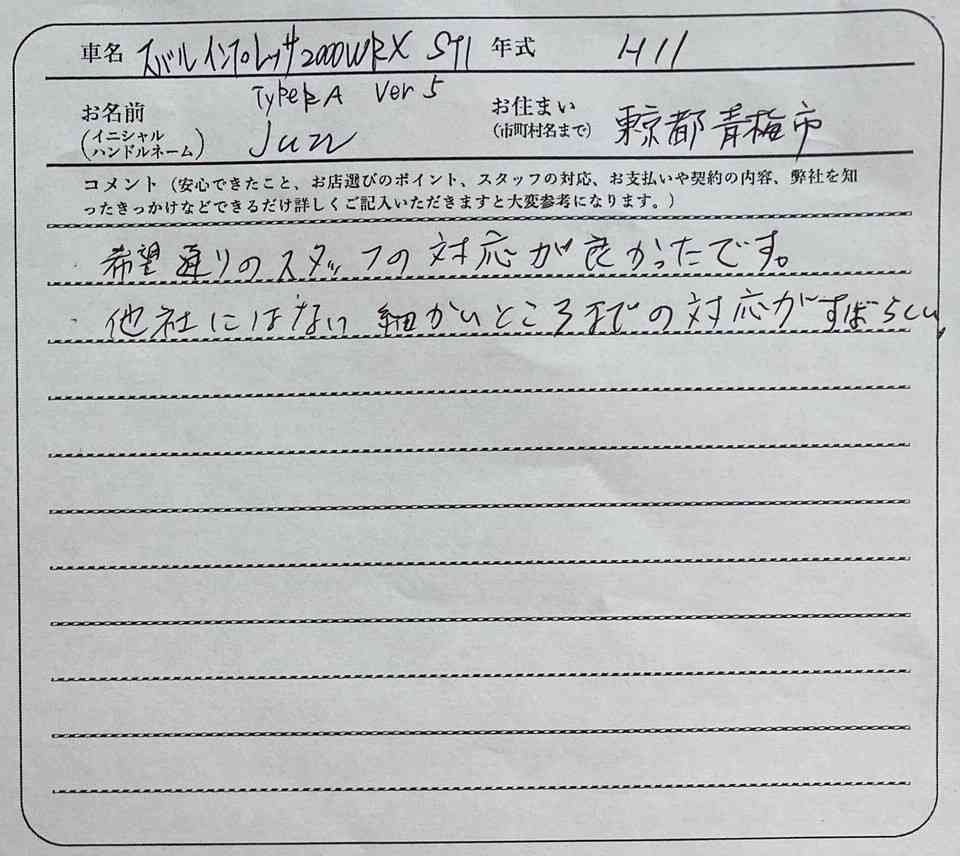 車名 スバルインプレッサ2000WRX STI 年式 H11
TypeRA Ver 5
お名前 お住まい
(イニシャル ハンドルネーム) Jun (市町村名まで)東京都青梅市
コメント（安心できたこと、お店選びのポイント、スタッフの対応、お支払いや契約の内容、弊社を知
ったきっかけなどできるだけ詳しくご記入いただきますと大変参考になります。）
・希望通りのスタッフの対応が良かったです。
・他社にはない細かいところまでの対応がすばらしい